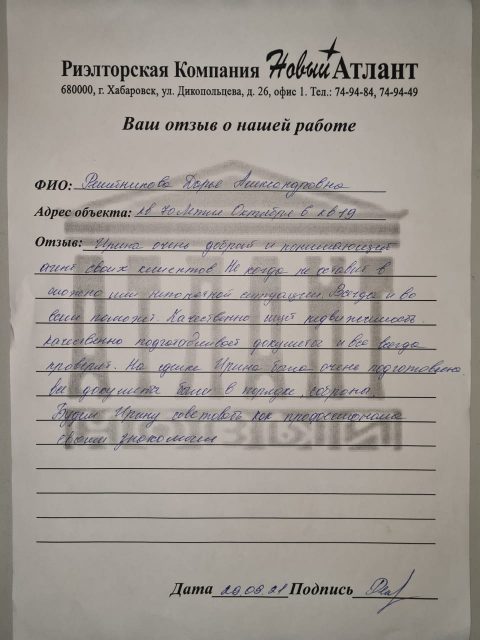 Риэлторская Компания Новый Атлант
680000, г. Хабаровск, ул. Дикопольцева, д. 26, офис 1. Тел.: 74-94-84, 74-94-49
Ваш отзыв о нашей работе
ФИО: Решетникова Дарья Александровна
Адрес объекта: 70 Октября 6 кв 19
Отзыв: Ирина очень добрый и понимающий
агент своих клиентов Ни когда не оставит в
сложной или непонятной ситуации. Всегда и во
всем поможет. Качественно ищет недвижимость,
качественно подготовливает документы и все всегда
проверит. На сделке Ирина была очень подготовлена
все документы были в порядке, собраны.
Будем Ирину советовать как профессионала
своим знакомым
Дата 20.03.21 Подпись